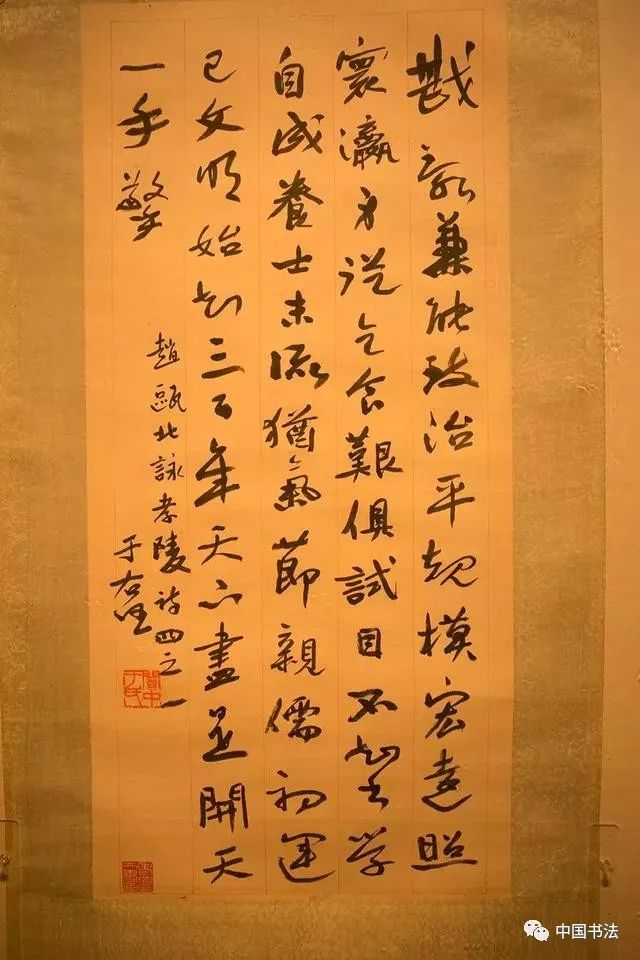 戡亂兼能致治平規模宏遠照
寰瀛身從乞食艱俱試目不知書学
自成養士末流猶氣節親儒初運
已文明始知三百年天下盡是開天
一手擎
趙甌北詠孝陵詩四之一
于右任
關中于氏
中国书法